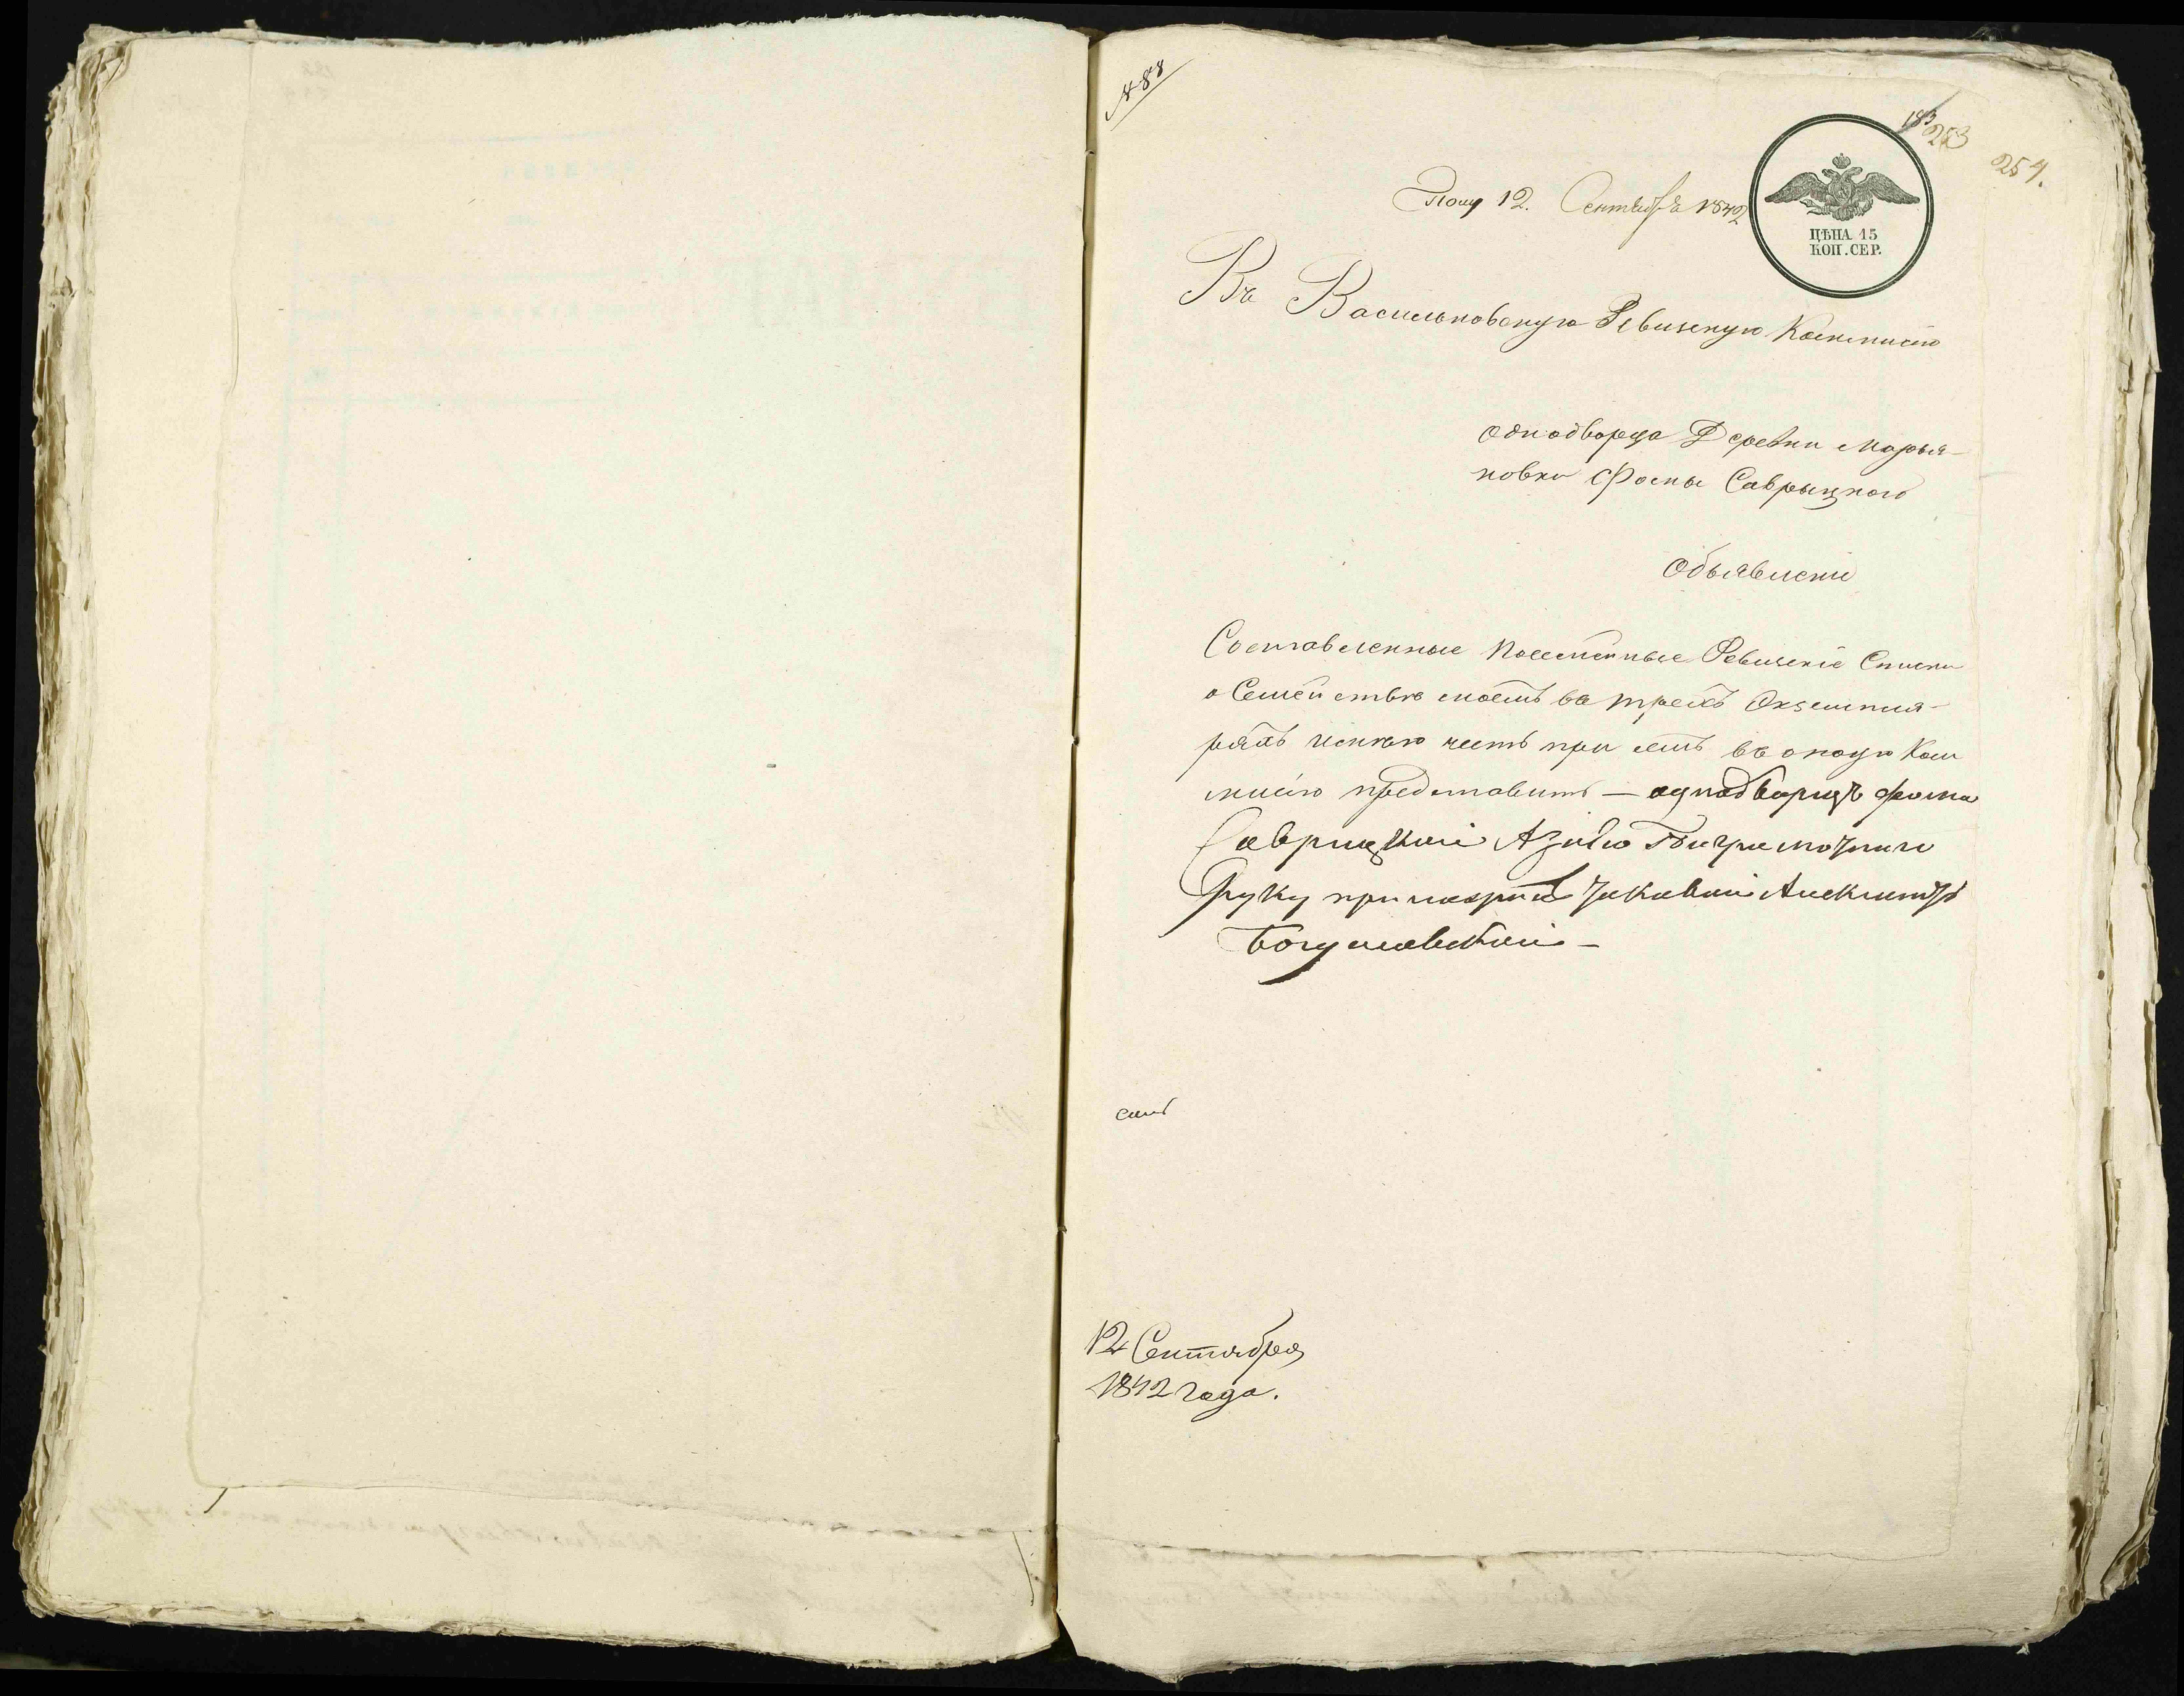 № 88
183 253
254.
Полу 12. Сентября 1842
ЦѢНА 15
КОП. СЕР.
Въ Васильковскую Ревизскую Коммисію
Однодворца Деревни Марья-
новки Фомы Саврыцкого
Объявленіе
Составленные Посемейные Ревизскіе Списки
о Семействѣ моемъ въ трехъ Экземпля-
рахъ имѣю честь при семъ въ оную Ком
мисію представить — однодворецъ Фома
Саврицкій А за его Неграмотнаго
Руку приложилъ Александръ
Богуславскій —
12 Сентября
1842 года.